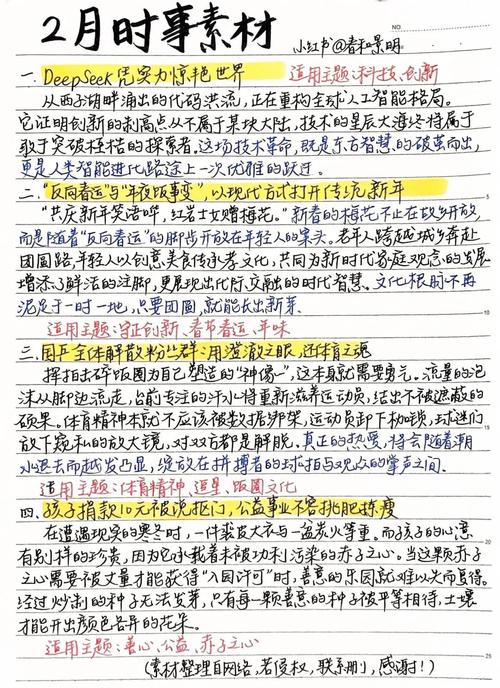 2月时事素材
NO.
小红书@春和景明
一. DeepSeek 凭实力惊艳世界 适用主题:科技、创新
从西子湖畔涌出的代码洪流,正在重构全球人工智能格局。
它证明创新的制高点从不属于某块大陆,技术的星辰大海终将属于
敢于突破桎梏的探索者。这场技术革命,既是东方智慧的破茧而出,
更是人类智能进化路途上一次优雅的跃迁。
二."反向春运"与"年夜饭事变",以现代方式打开传统新年
"共庆新年笑语哗,红岩士女赠梅花。"新春的梅花不止在故乡开放,
而是随着"反向春运"的脚步开放在年轻人的案头。老年人跨越城乡奔赴
团圆路,年轻人以创意美食传承孝文化,共同为新时代家庭观念的发展
增添了鲜活的注脚,更展现出代际交融的时代智慧。文化根脉不再
泥足于一时一地,只要团圆,就能长出新芽。
适用主题:守正创新、春节春运、年味
三.国乒全体解散粉丝群:用澄澈之眼,还体育之魂
挥拍击碎饭圈为自己塑造的"神像",这本身就需要勇气。流量的泡
沫从脚边流走,台前专注的汗水将重新滋养运动员,结出不被遮蔽的
硕果。体育精神本就不应该被数据绑架,运动员卸下枷锁,球迷们
放下窥私的放大镜,对双方都是解脱。真正的热爱,将会随着潮
水退去而越发凸显,绽放在拼搏者的球拍与观众的掌声之间。
适用主题:体育精神、追星、饭圈文化
四.孩子捐款10元被说抠门,公益事业不容挑肥拣瘦
在遭遇现实的寒冬时,一件裘皮大衣与一盆炭火等重。而孩子的心意
有别样的珍贵,因为它承载着未被功利污染的赤子之心。当这颗赤子
之心需要被丈量才能获得"入园许可"时,善意的乐园就难以失而复得。
经过炒制的种子无法发芽,只有每一颗善意的种子被平等相待,土壤
才能开出颜色各异的花朵。
适用主题:善心、公益、赤子之心
(素材整理自网络,若侵权,联系删,感谢!)